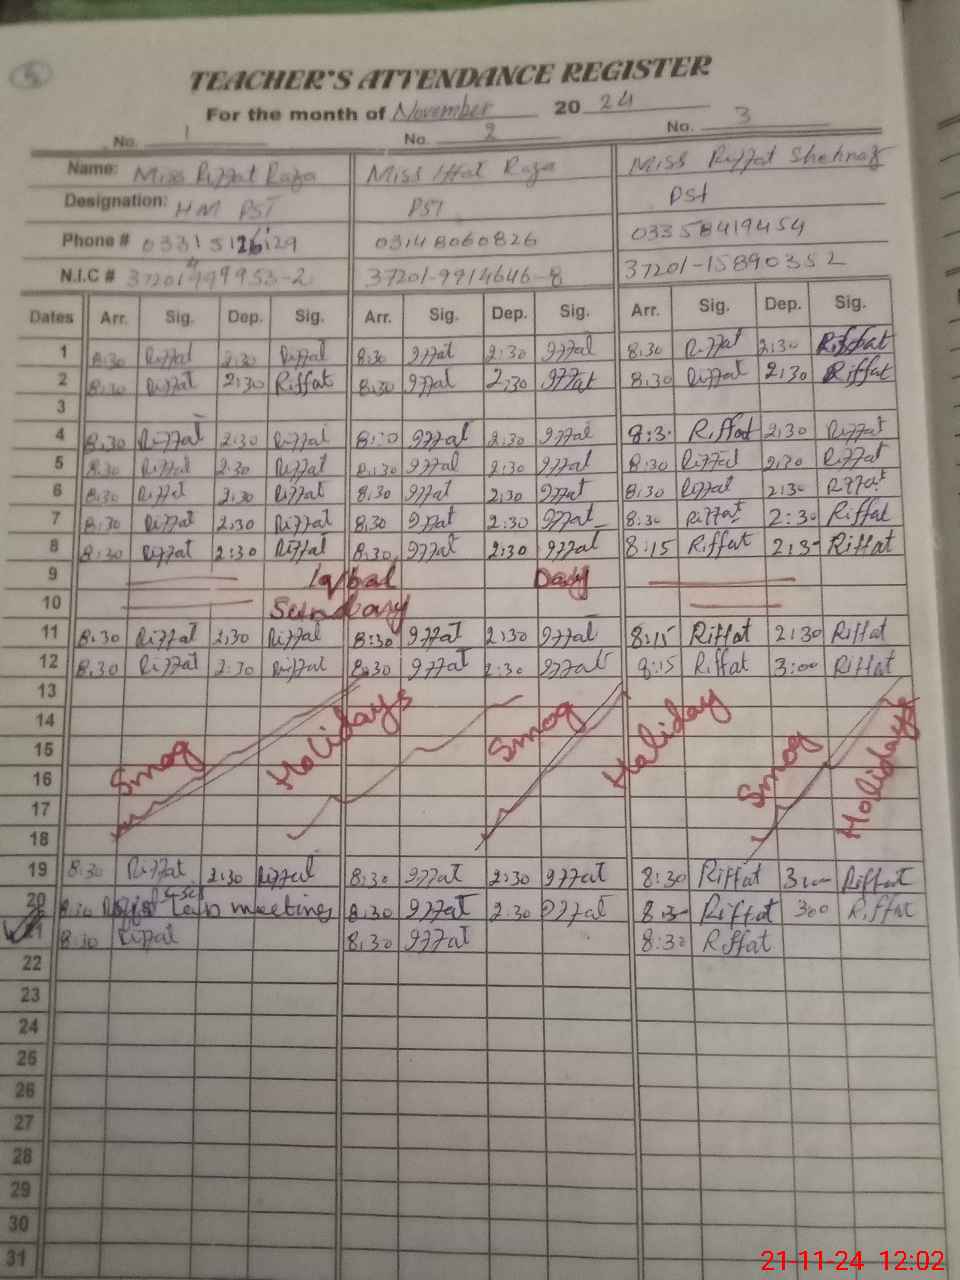 5
TEACHER'S ATTENDANCE REGISTER
For the month of November 2024
No. 1 No. 2 No. 3
Name: Miss Riffat Raza Miss Iffat Raza Miss Riffat Shehnaz
Designation: HM PST PST PST
Phone # 0331 5126129 03148060826 03358419454
N.I.C # 37201-9914646-8 37201-15890352
Dates Arr. Sig. Dep. Sig. Arr. Sig. Dep. Sig. Arr. Sig. Dep. Sig.
1 8:30 Riffat 2:30 Riffat 8:30 Iffat 2:30 Iffat 8:30 Riffat 2:30 Riffat
2 8:30 Riffat 2:30 Riffat 8:30 Iffat 2:30 Iffat 8:30 Riffat 2:30 Riffat
3
4 8:30 Riffat 2:30 Riffat 8:30 Iffat 2:30 Iffat 8:3. Riffat 2:30 Riffat
5 8:30 Riffat 2:30 Riffat 8:30 Iffat 2:30 Iffat 8:30 Riffat 2:30 Riffat
6 8:30 Riffat 2:30 Riffat 8:30 Iffat 2:30 Iffat 8:30 Riffat 2:30 Riffat
7 8:30 Riffat 2:30 Riffat 8:30 Iffat 2:30 Iffat 8:30 Riffat 2:30 Riffat
8 8:30 Riffat 2:30 Riffat 8:30 Iffat 2:30 Iffat 8:15 Riffat 2:3- Riffat
9 Iqbal Day
10 Sunday
11 8:30 Riffat 2:30 Riffat 8:30 Iffat 2:30 Iffat 8:15 Riffat 2:30 Riffat
12 8:30 Riffat 2:30 Riffat 8:30 Iffat 2:30 Iffat 8:15 Riffat 3:00 Riffat
13
14
15 Smog Holidays Smog Holiday Smog Holidays
16
17
18
19 8:30 Riffat 2:30 Riffat 8:30 Iffat 2:30 Iffat 8:30 Riffat 3:00 Riffat
20 8:30 meeting 8:30 Iffat 2:30 Iffat 8:3- Riffat 300 Riffat
21 8:30 Riffat 8:30 Iffat 8:30 Riffat
22
23
24
25
26
27
28
29
30
31
21-11-24 12:02